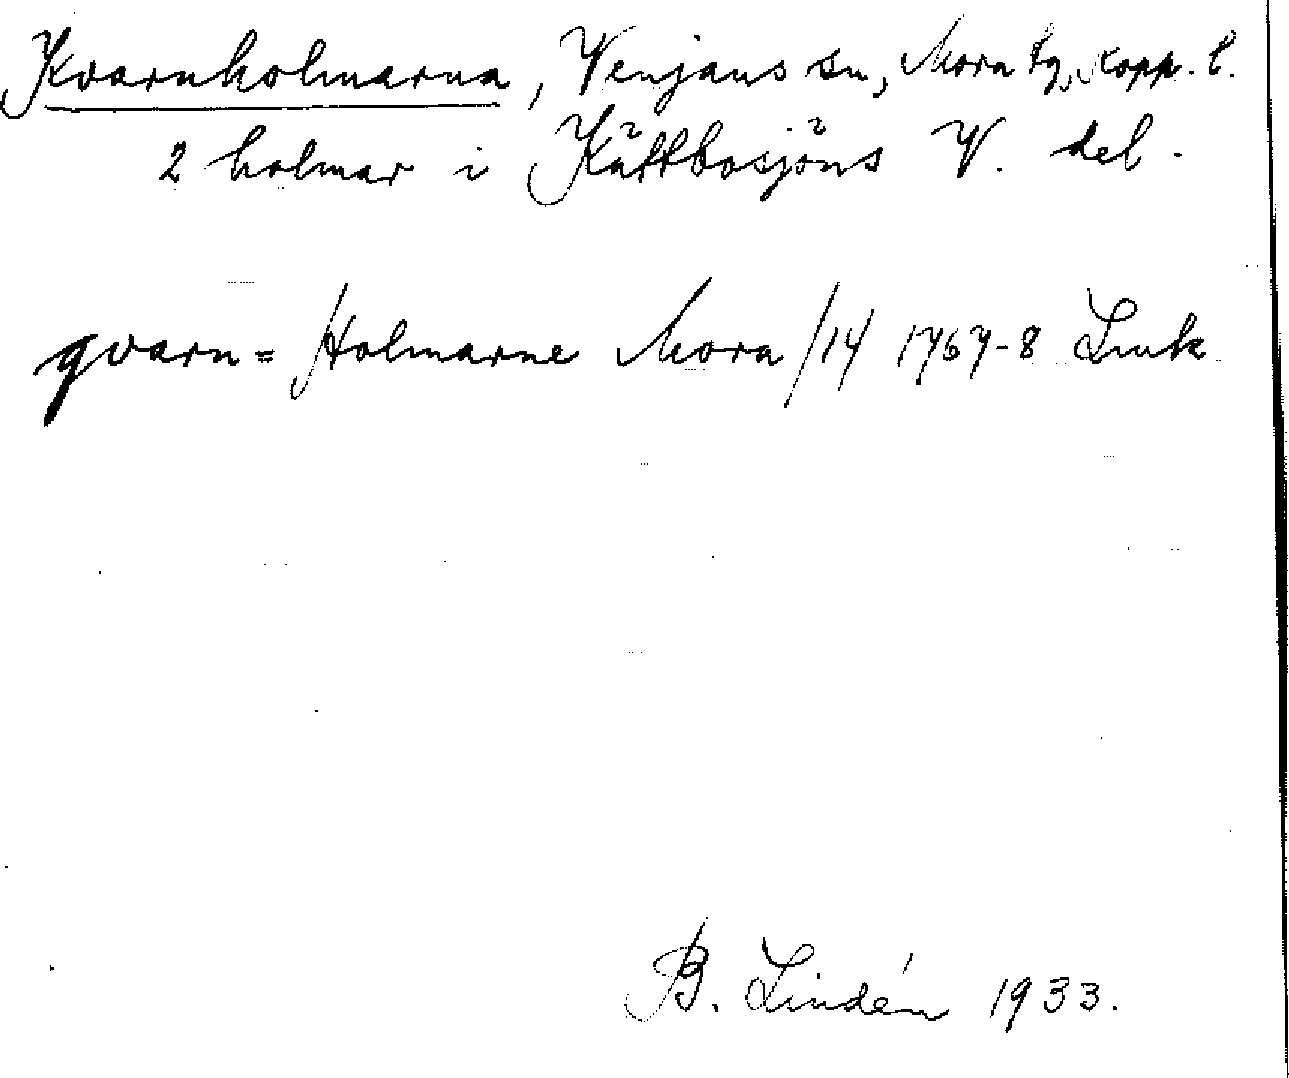 Kvarnholmarna, Venjans sn, Mora tg, Kopp. l.
2 holmar i Kättbosjöns V. del.
qvarn= Holmarne Mora /14 1767-8 Lmk
B. Lindén 1933.